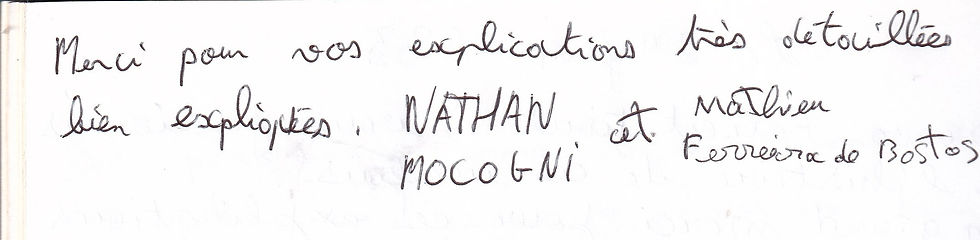 Merci pour vos explications très détaillées
bien expliqées. NATHAN et Mathieu
MOCOGNI Ferreira de Bostos